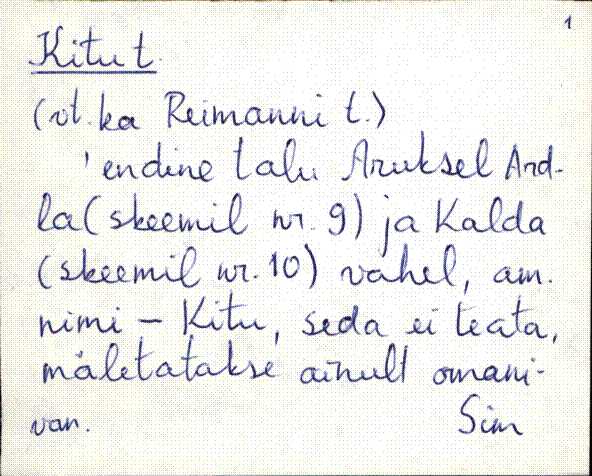 1
Kitu t.
(vt. ka Reimanni t.)
'endine talu Aruksel Ard-
la (skeemil nr. 9) ja Kalda
(skeemil nr. 10) vahel, am.
nimi – Kitu, seda ei teata,
mäletatakse ainult omani-
van. Sim